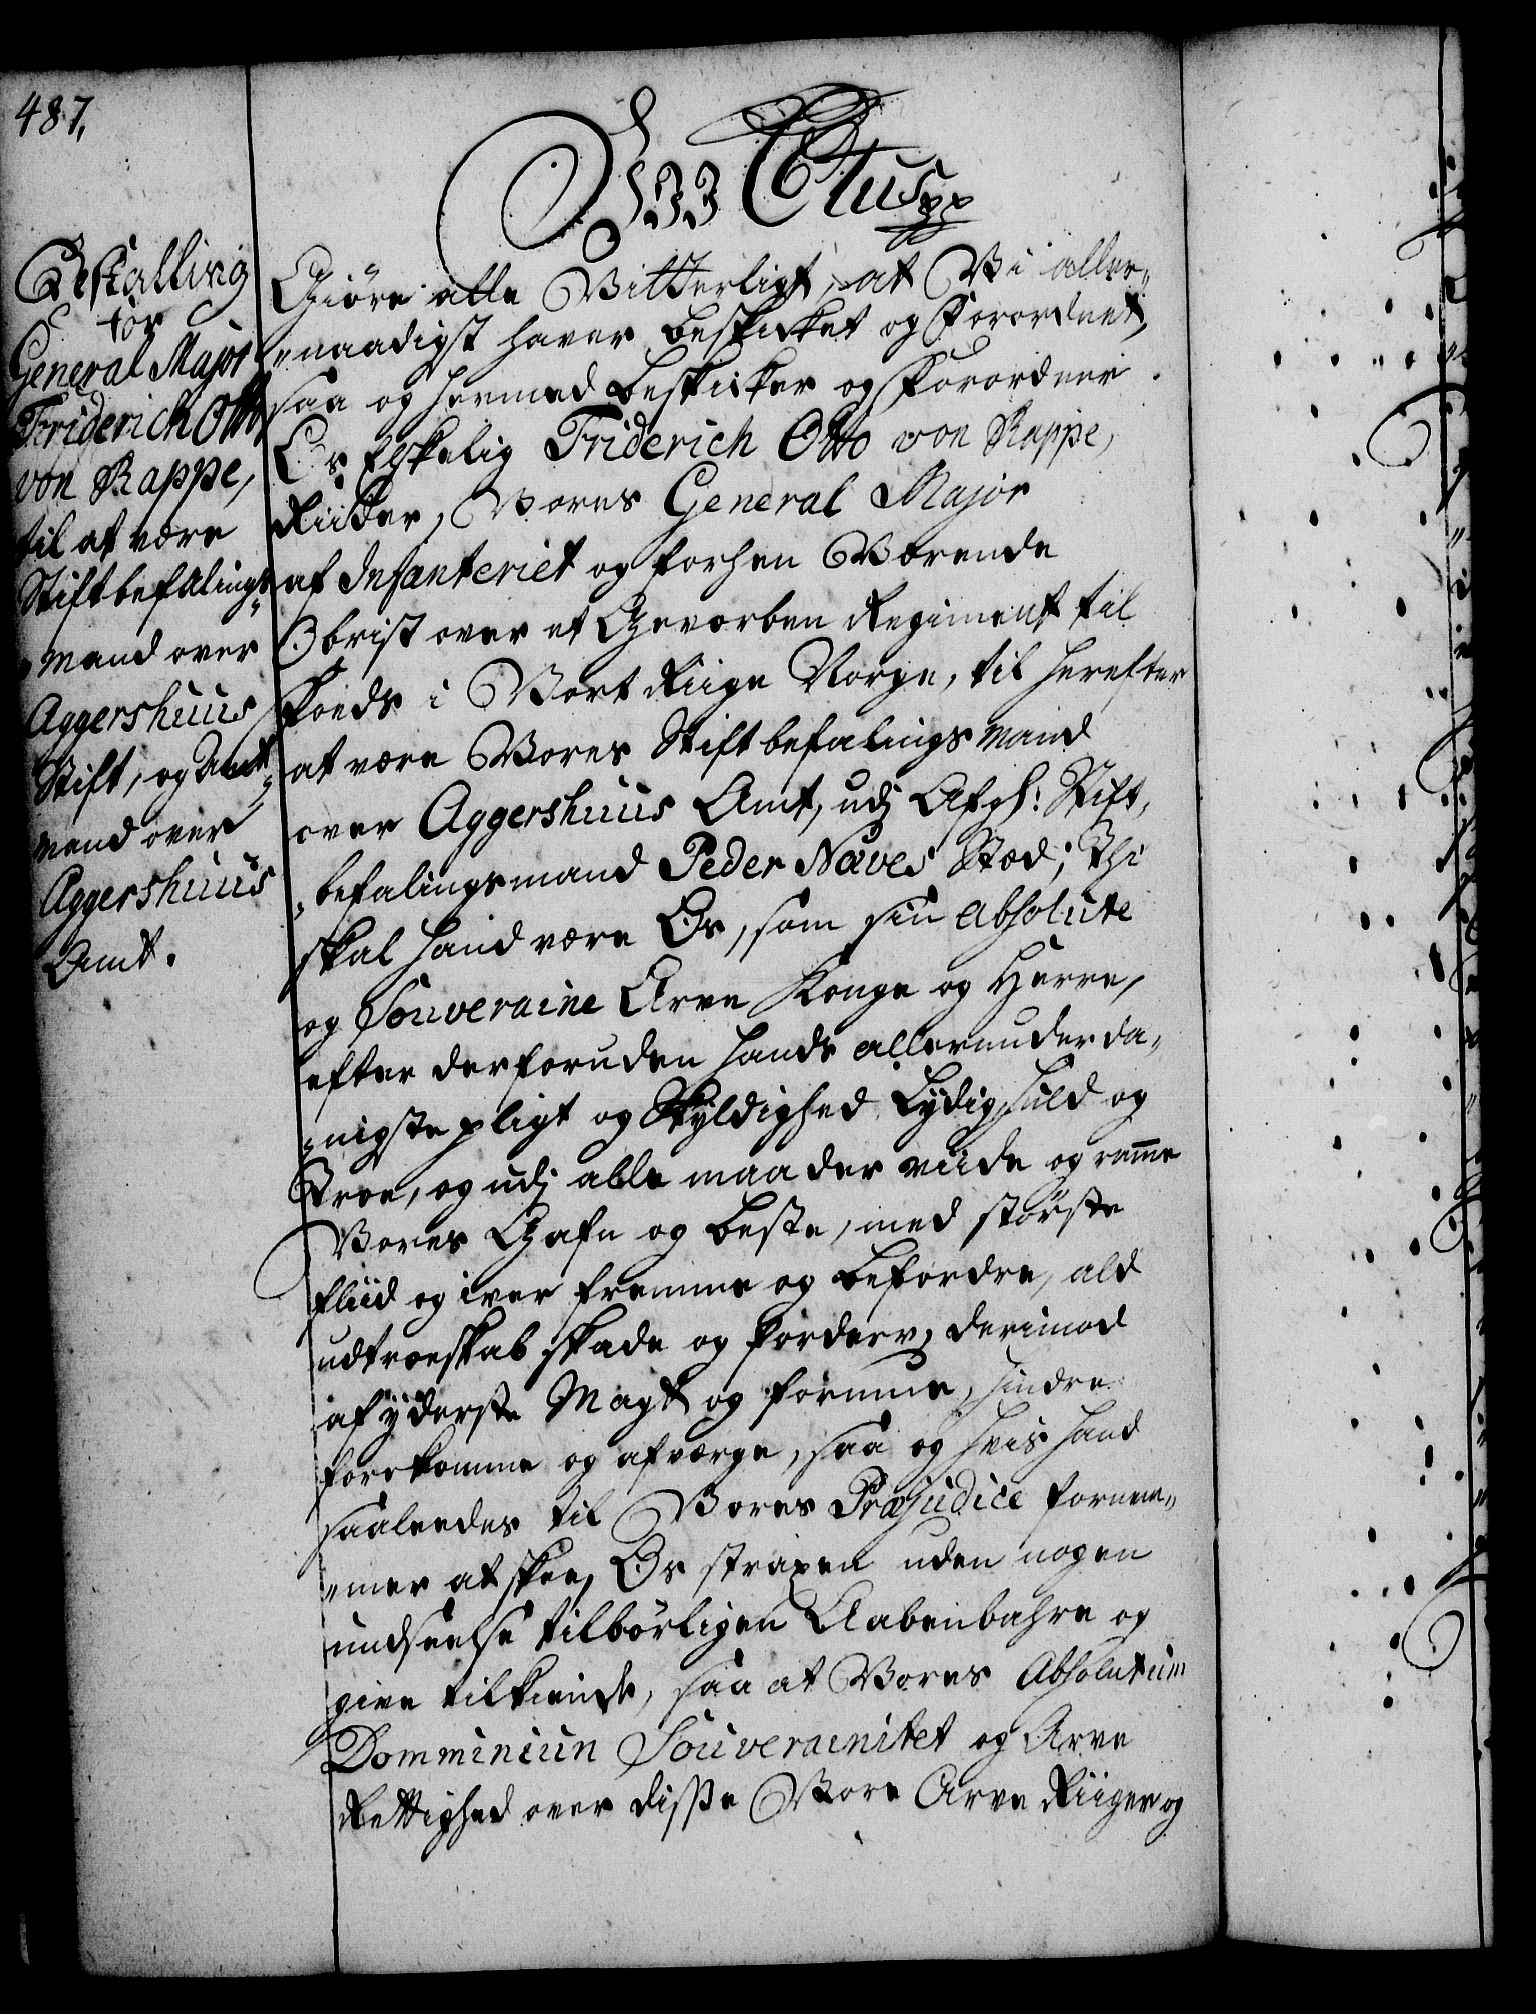 487,
Bestalling
for
General Major
Friderich Otto
von Rappe,
til at være
Stiftbefalings
„mand over
Aggershuus
Stift, og Amt„
mand over
Aggershuus
Amt.
CVItus pp
Giöre alle Vitterligt, at Vi aller„
„naadigst haver beskikket og Forordnet,
saa og hermed beskikker og Forordner
Os Elskelig Friderich Otto von Rappe,
Ridder, Vores General Major
af Infanteriet og forhen Værende
Obrist over et Gevorben Regiment til
Foeds i Vort Riige Norge, til herefter
at være Vores Stiftbefalings Mand
over Aggershuus Amt, udj Afgl: Stift„
„befalingsmand Peder Næves Stæd; Thi
skal hand være Os, som sin absolute
og Souveraine Arve Konge og Herre,
efter derforuden hands allerunderda„
„nigste pligt og Skyldighed Lydig, huld og
Troe, og udj alle maader viide og ramme
Vores Gafn og beste, med störste
fliid og iver fremme og befordre, ald
udtroeskab skade og Forderv, derimod
af yderste Magt og formue, hindre
forekomme og afværge, saa og hvis hand
saaleedes til Vores Præjudice fornem„
„mer at skee, Os straxen uden nogen
undseelse tilbörligen Aabenbahre og
give tilkiende, saa at Vores Absolutum
Domminium Souverainitet og Arve
Rettighed over disse Vore Arve Riiger og